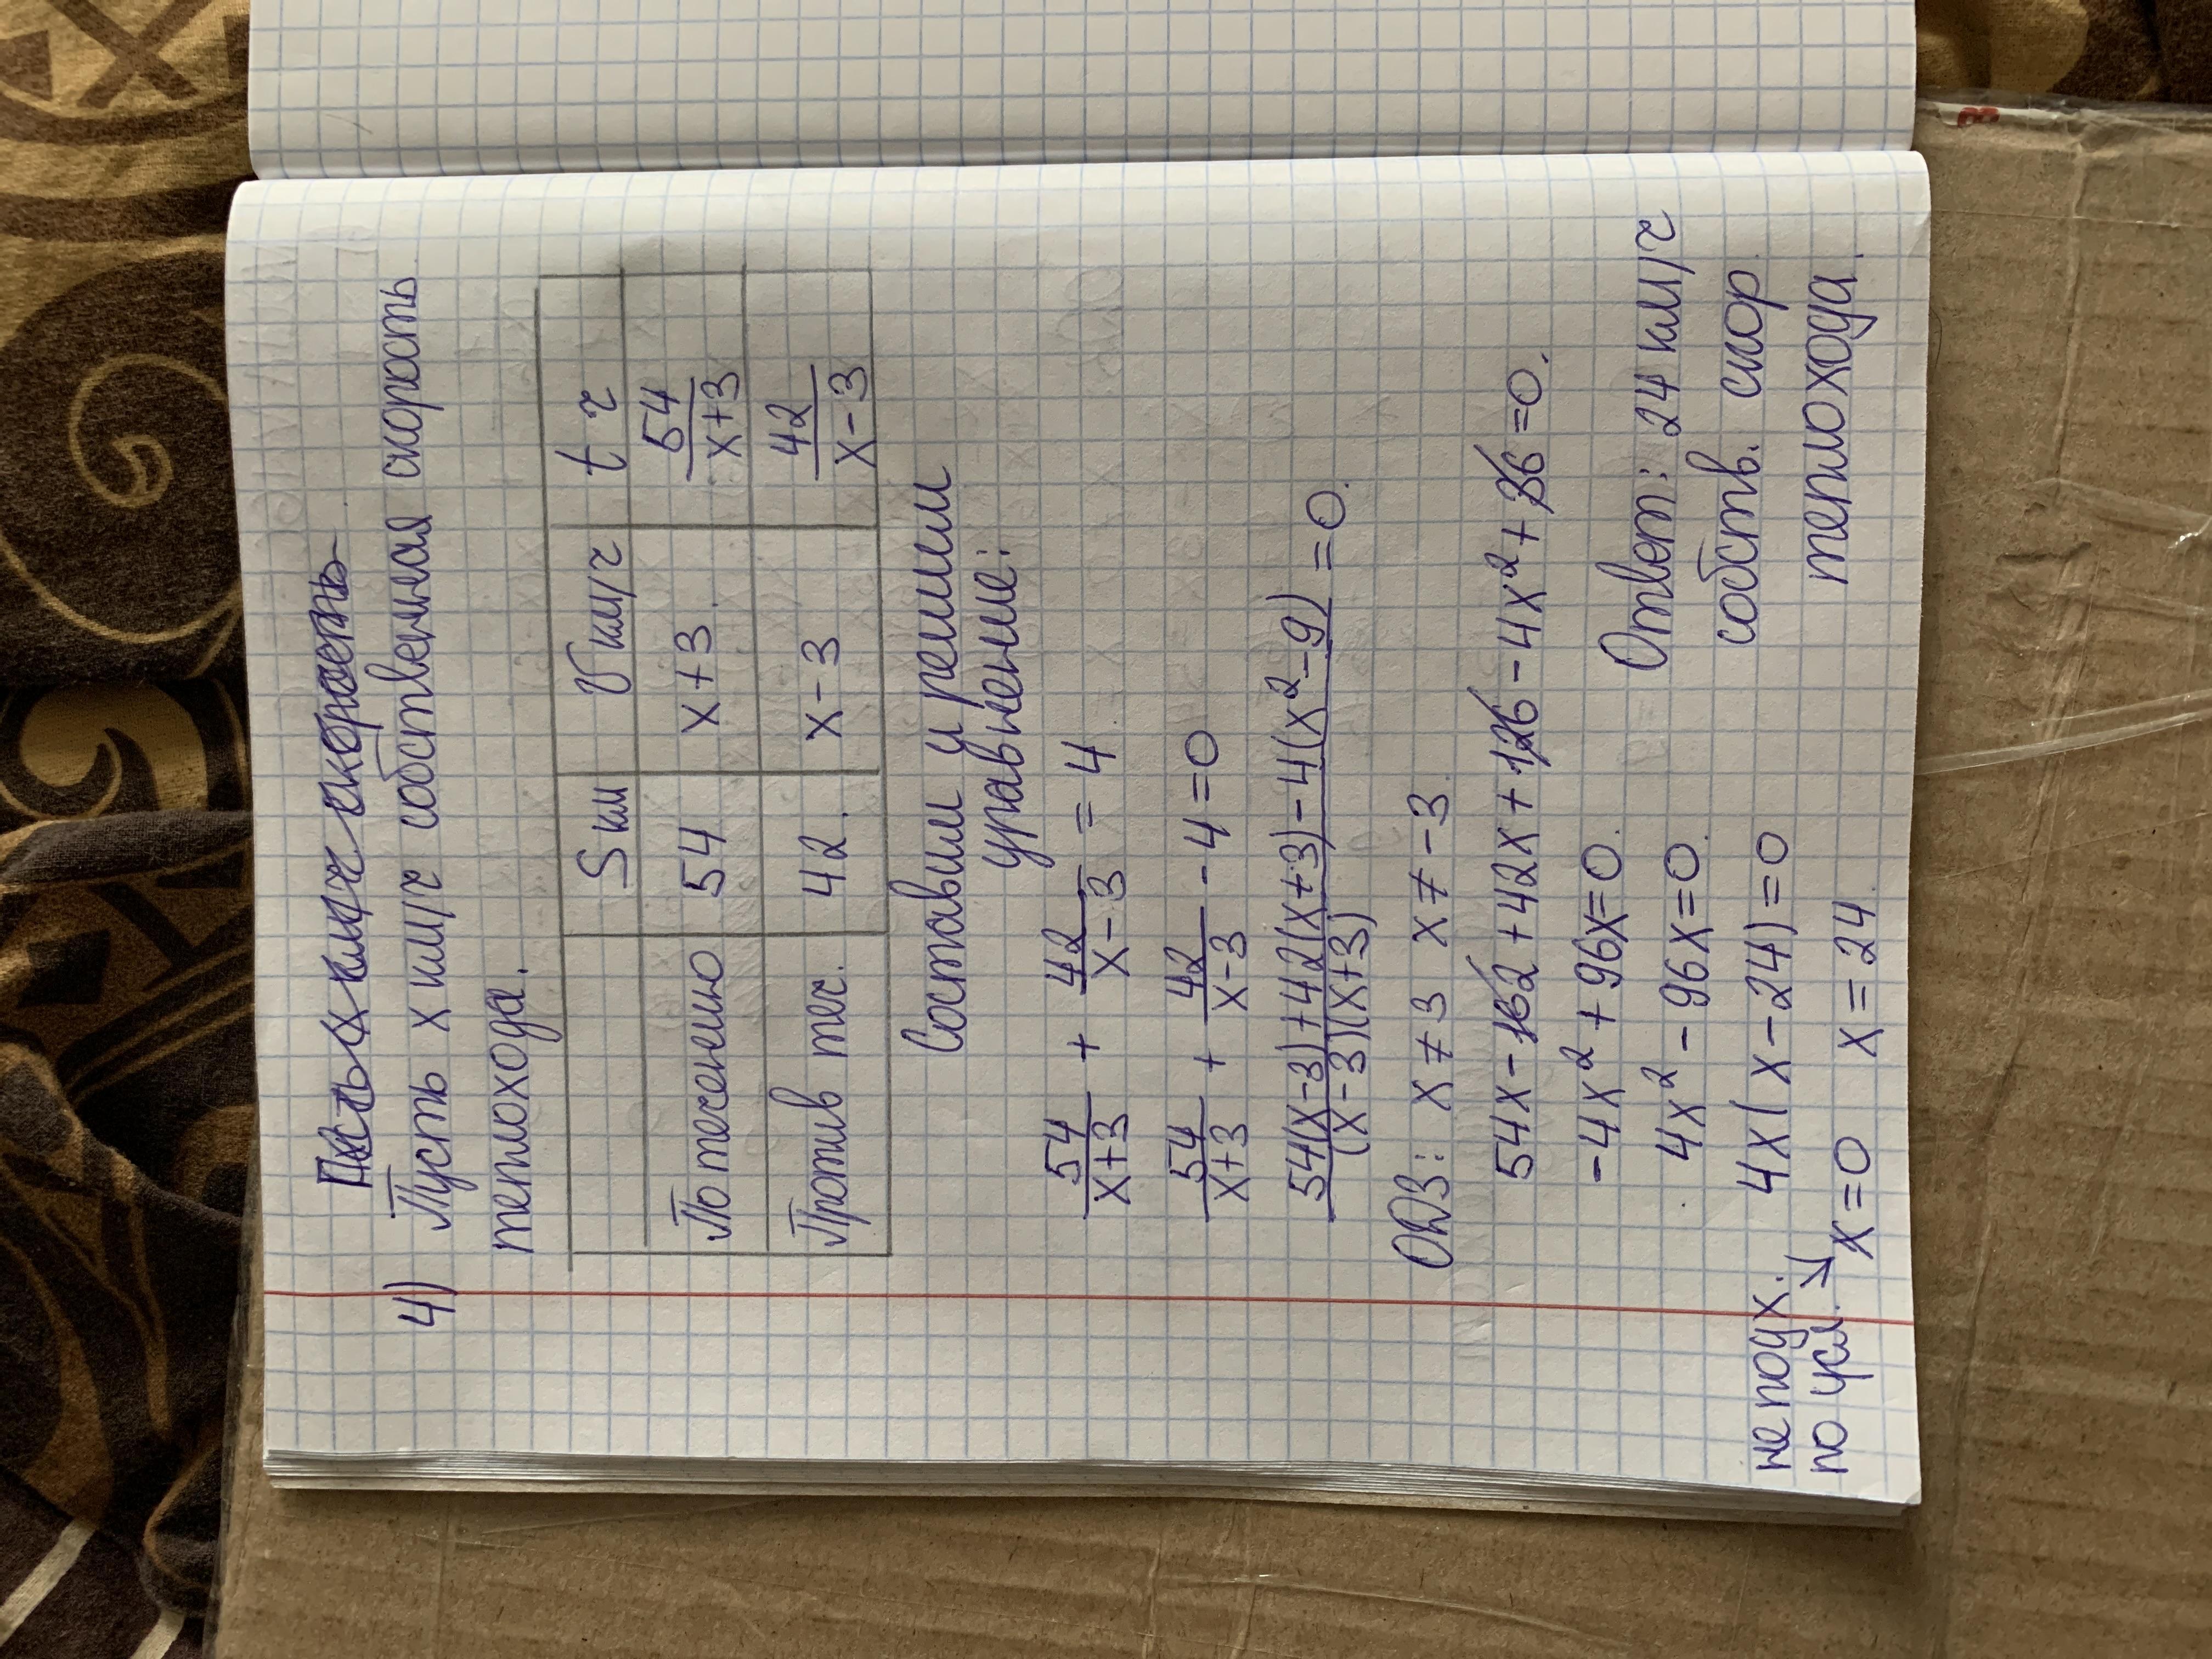 Пусть x км/ч скорость
4) Пусть x км/ч собственная скорость
теплохода.
S км V км/ч t ч
По течению 54 x+3 54/(x+3)
Против теч. 42. x-3 42/(x-3)
Составим и решим
уравнение:
54/(x+3) + 42/(x-3) = 4
54/(x+3) + 42/(x-3) - 4 = 0
(54(x-3)+42(x+3)-4(x²-9))/((x-3)(x+3)) = 0.
ОДЗ: x≠3 x≠-3
54x-162+42x+126-4x²+36=0.
-4x²+96x=0.
4x²-96x=0.
4x(x-24)=0
не подх. по усл. ↘
x=0 x=24.
Ответ: 24 км/ч
собств. скор.
теплохода.